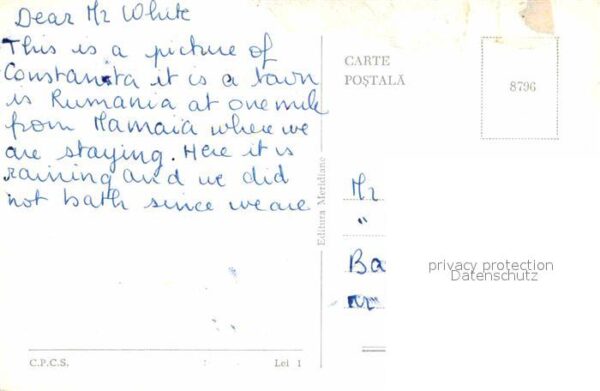 Dear Mr White
This is a picture of
Constanta it is a town
is Rumania at one mile
from Mamaia where we
are staying. Here it is
raining and we did
not bath since we are
CARTE
POȘTALĂ
8796
Editura Meridiane
Mr
"
Ba
privacy protection
Datenschutz
C.P.C.S.
Lei 1